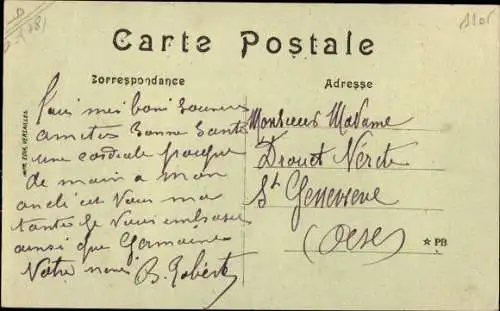 5108
Carte Postale
Correspondance
Adresse
mes bons Souvenirs
amities Bonne Santé
une cordiale poigné
de main a mon
oncle et Vous ma
tante Je Vous embrasse
ainsi que Germaine
Votre neveu B. Robert
Monsieur Madame
Drouet Nérét
St Genevieve
(Oise)
★ PB
IMP. EDIA VERSAILLES